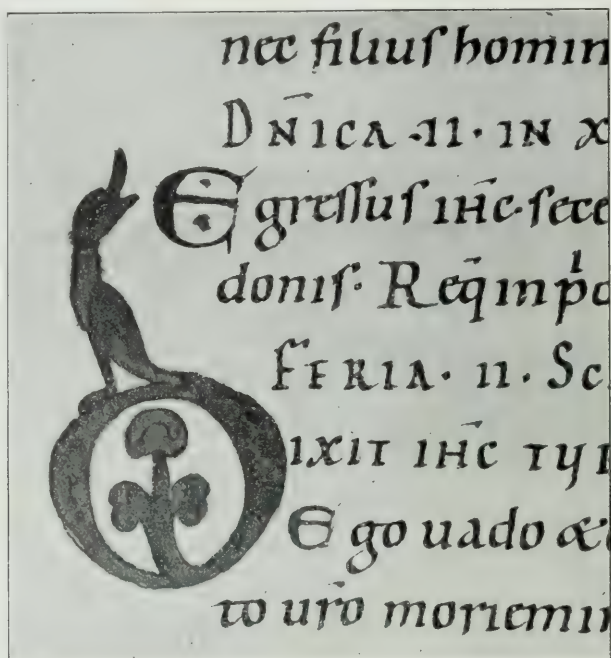 nec filiuſ homin
DN̄ICA ·II· IN X
Egreſſuſ IH̄C· ſece
doniſ· Req̄ in p͛i
FERIA · II · Sc
DIXIT IH̄C TYI
Ego uado &
to ur̄o moriemi